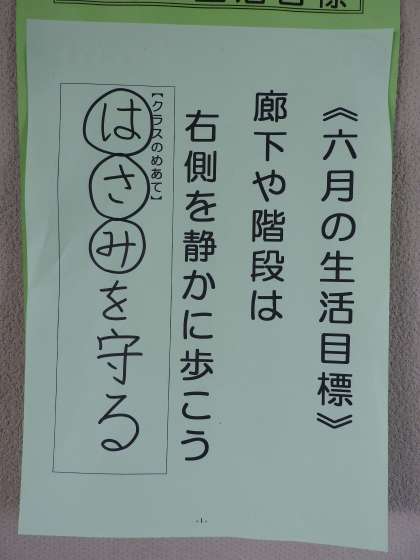 生活目標
《六月の生活目標》
廊下や階段は
右側を静かに歩こう
【クラスのめあて】
はさみを守る
-1-